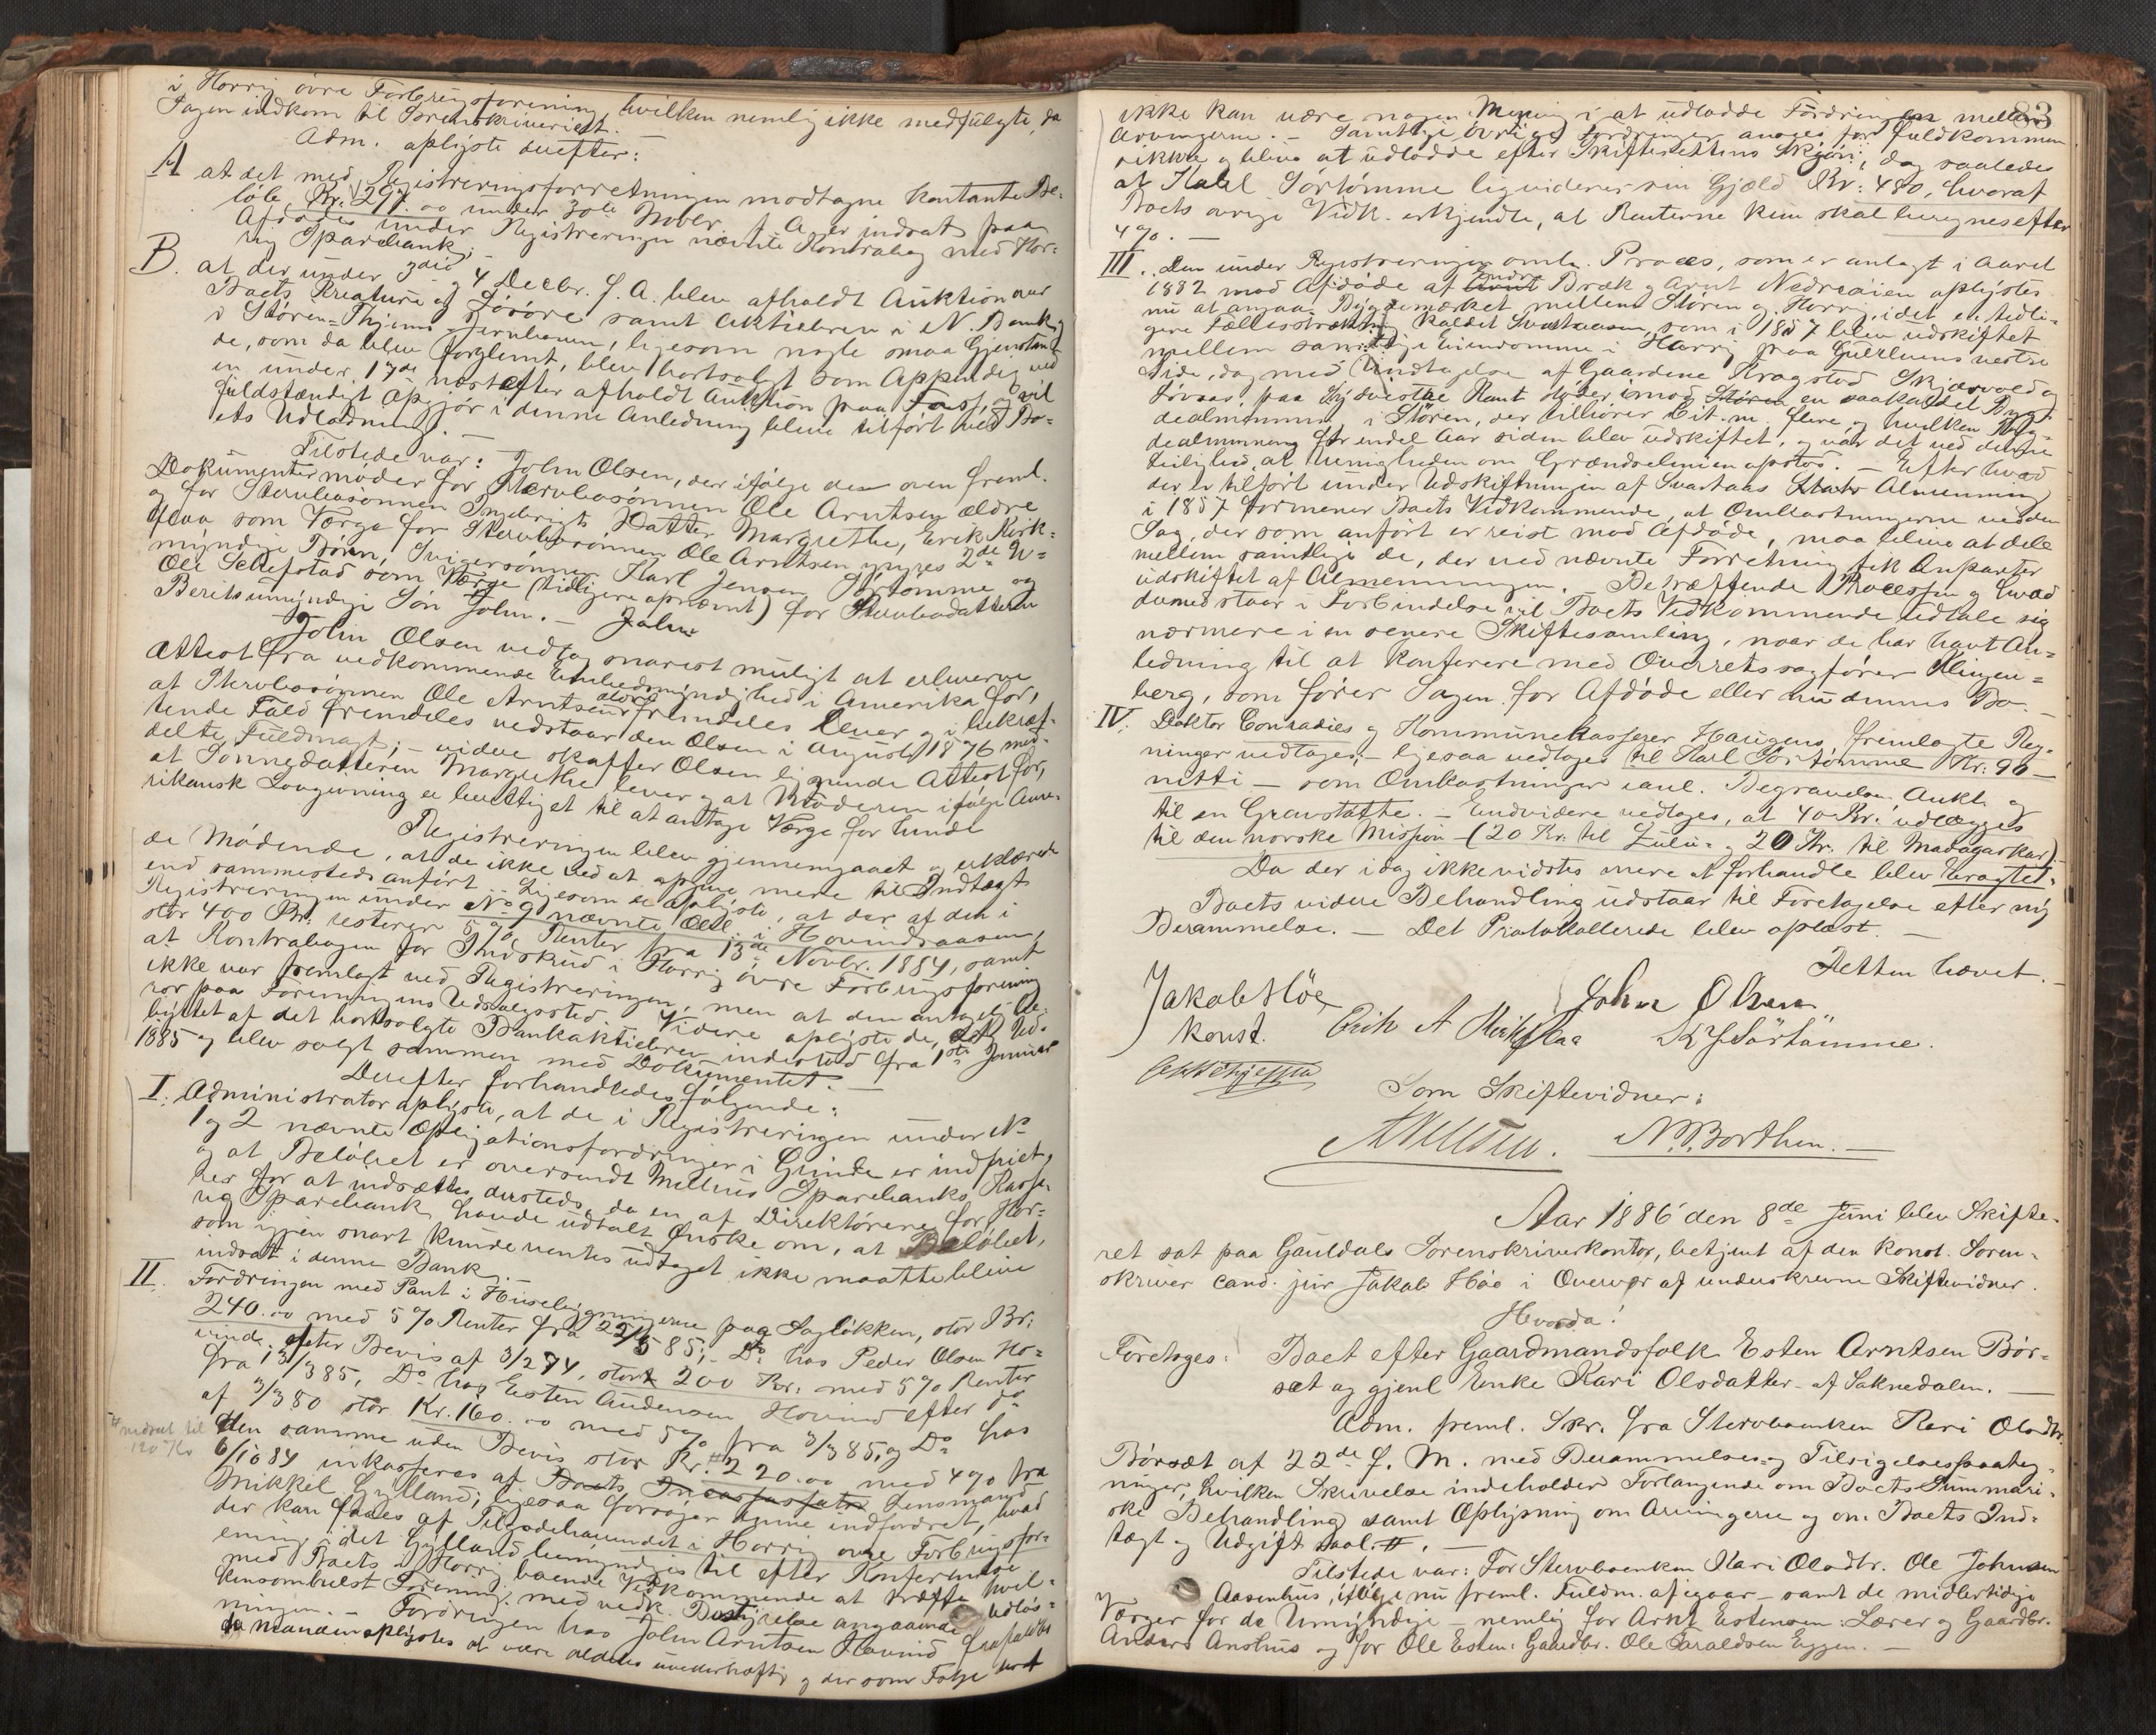 i Horrig övre Forbrugsforening hvilken nemlig ikke medfulgte, da
Sagen indkom til Sorenskriveriet. —
Adm. oplyste derefter:
A at det med Registreringsforretningen modtagne kontante Be-
löb, Kr. 297.00 under 30te Novbr. f. A. er indsat paa
Afdödes under Registreringen nævnte Kontrabog med Hor-
rig Sparebank;
B. at der under 3die og 4 Decbr. f. A. blev afholdt Auktion over
Boets Kreature og Lösöre samt Aktiebrev i N. Bank og
i Stören-Thjems Jernbanen, ligesom nogle smaa Gjenstan-
de, som da blev forglemt, blev bortsolgt som Appendix ved
en under 17de næstefter afholdt Auktion paa Foss, og vil
fuldstændigt Opgjör i denne Anledning blive tilfört ved Bo-
ets Udlodning. —
Tilstede var: John Olsen, der ifölge den oven freml.
Dokumenter möder for Stervbosönnen Ole Arntsen ældre
og for Stervbosönnen Ingebrigts Datter Margrethe, Erik Kirk-
flaa som Værge for Stervbosönnen Ole Arntsen yngres 2de U-
myndige Börn, Svigersönnen Karl Jensen Sörtömme og
Ole Solefstad som Værge (tidligere opnævnt) for Stervbodatteren
Berits umyndige Sön John. — John
John Olsen vedtog snarest muligt at erhverve
Attest fra vedkommende Enhedsmyndighed i Amerika for,
at Stervbosönnen Ole Arntsen ældre fremdeles lever og i bekræf-
tende Fald fremdeles vedstaar den Olsen i August 1876 med-
delte Fuldmagt; — videre skaffer Olsen lignende Attest for,
at Sönnedatteren Margrethe lever og at Moderen ifölge Ame-
rikansk Lovgivning er berettiget til at antage Værge for hende
Registreringen blev gjennemgaaet og erklærede
de Mödende, at de ikke ved at opgive mere til Indtægt
end sammesteds anfört. — Ligesom de oplyste, at der af den i
Registreringen under No 9 nævnte Obl. i Hovindsaasen,
stor 400 Kr. resterer 5% Renter fra 13de Novbr. 1884, samt
at Kontrabogen for Indskud i Horrig övre Forbrugsforening
ikke var fremlagt ved Registreringen, men at den antagelig be-
ror paa Foreningens Udsalgssted. Videre oplyste de, at Ud-
byttet af det bortsolgte Bankaktiebrev indestod fra 1ste Januar
1885 og blev solgt sammen med Dokumentet. —
Derefter forhandledes fölgende:
I. Administrator oplyste, at de i Registreringen under No
1 og 2 nævnte Obligationsfordringer i Grinde er indfriet,
og at Belöbet er oversendt Melhus Sparebanks Kasse-
rer for at indsættes dersteds, da en af Direktörerne for Hor-
rig Sparebank havde udtalt Önske om, at Belöbet,
som igjen snart kunde ventes udtaget ikke maatte blive
indsat i denne Bank.
II. Fordringen med Pant i Huseligningerne paa Saglökken, stor Kr.
240.00 med 5% Renter fra 22/5 85; Do hos Peder Olsen Ho-
vind efter Bevis af 3/2 74, stort 200 Kr. med 5% Renter
fra 13/3 85, Do hos Esten Andersen Hovind efter do
af 3/3 80 stor Kr. 160.00 med 5% fra 3/3 85, og Do hos
# nedsat til
120 Kr
den samme uden Bevis stor Kr. # 220.00 med 4% fra
6/10 84 inkasseres af Boets Incassator Lensmand
Mikkel Gylland; ligesaa forsöger denne indfordret, hvad
der kan faaes af Tilgodehavendet i Horrig övre Forbrugsfor-
ening, idet Gylland bemyndiges til efter Konferentse
med Boets i Horrig boende Vedkommende at træffe hvil-
kensomhelst Forening med vedk. Bestyrelse angaaende Udlös-
ningen. — Fordringen hos John Arntsen Hovind frafaldtes
da Manden oplystes at være aldeles uvederhæftig og der som Fölge deraf
83
ikke kan være nogen Mening i at udlodde Fordringen mellem
Arvingerne. — Samtlige övrige Fordringer ansees for fuldkommen
sikkre og blive at udlodde efter Skifterettens Skjön, dog saaledes
at Karl Sörtömme ligviderer sin Gjæld Kr. 480, hvoraf
Boets övrige Vedk. erkjendte, at Renterne kun skal beregnes efter
4%. —
III. Den under Registreringen omh. Proces, som er anlagt i Aaret
1882 mod Afdöde af Arnt Endre Bræk og Arnt Nedreaien oplystes
nu at angaa Byggemærket mellem Stören og Horrig, idet en tidli-
gere Fællesstrækning kaldet Svartaasen, som i 1857 blev udskiftet
mellem samtlige Eiendomme i Horrig paa Gulelvens vestre
Side, dog med Undtagelse af Gaardene Kragstad Skjærvold og
Lövaas, paa Sydvestre Kant stöder imod Stören en saakaldet Byg-
dealminning i Stören, der tilhörer Cit. m. flere og hvilken Byg-
dealminning for endel Aar siden blev udskiftet, og var det ved denne
Leilighed, at Uenigheden om Grændselinien opstod. — Efter hvad
der er tilfört under Udskiftningen af Svartaas Stats Almenning
i 1857 formener Boets Vedkommende, at Omkostningerne ved den
Sag, der som anfört er reist mod Afdöde, maa blive at dele
mellem samtlige de, der ved nævnte Forretning fik Anparter
udskiftet af Almenningen. Betræffende Processen og hvad
dermed staar i Forbindelse vil Boets Vedkommende udtale sig
nærmere i en senere Skiftesamling, naar de har havt An-
ledning til at konferere med Overretssagförer Klingen-
berg, som förer Sagen for Afdöde eller nu dennes Bo. —
IV. Doktor Conradies og Kommunekasserer Haugens fremlagte Reg-
ninger vedtages, — ligesaa vedtages til Karl Sörtömme Kr. 90 —
nitti — som Omkostninger ianl. Begravelse, Aukt. og
til en Gravstötte. — Endvidere vedtages, at 40 Kr. udlægges
til den norske Mission (20 Kr. til Zulu- og 20 Kr. til Madagaskar)
Da der idag ikke vidstes mere at forhandle blev eragtet:
Boets videre Behandling udstaar til Foretagelse efter ny
Berammelse. — Det Protokollerede blev oplæst. —
Retten hævet. —
Jakob Höe
konst.
John Olsen
Erik A Kirkflaa
K J Sörtömme.
Som Skiftevidner:
N. Borthen. —
Aar 1886 den 8de Juni blev Skifte-
ret sat paa Gauldals Sorenskriverkontor, betjent af den konst. Soren-
skriver cand. jur Jakob Höe i Overvær af underskrevne Skiftevidner.
Hvorda!
Foretoges: Boet efter Gaardmandsfolk Esten Arntsen Bör-
sæt og gjenl Enke Kari Olsdatter af Soknedalen. —
Adm. freml. Skr. fra Stervboenken Kari Olsdtr.
Börsæt af 22de f. M. med Berammelses og Tilsigelsespaateg-
ninger, hvilken Skrivelse indeholder Forlangende om Boets Summari-
ske Behandling samt Oplysning om Arvingerne og om Boets Ind-
tægt og Udgift saal. #. —
Tilstede var: For Stervboenken Kari Olsdtr. Ole Johnsen
Aasenhus, ifölge nu freml. Fuldm. af igaar — samt de midlertidige
Værger for de Umyndige — nemlig for Arnt Estensen: Lærer og Gaardbr.
Anders Aashus og for Ole Esten: Gaardbr. Ole Haraldsen Eggen. —